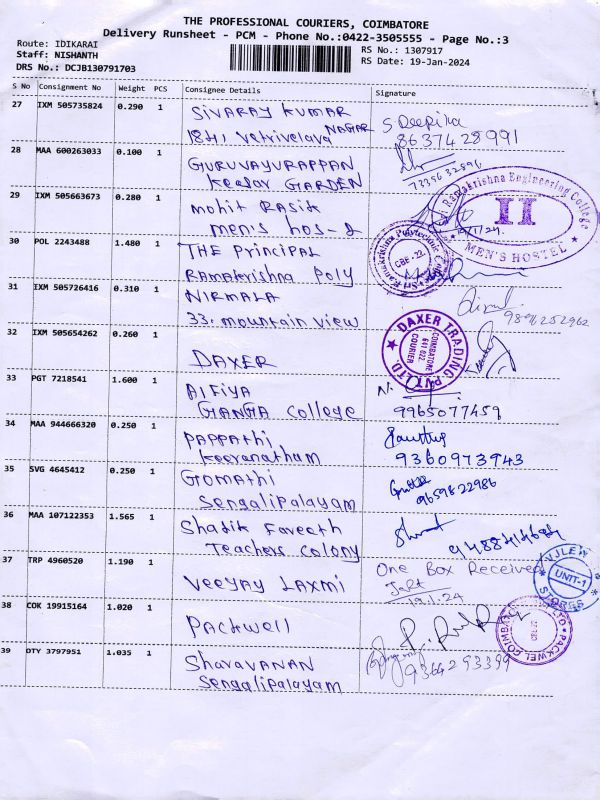 THE PROFESSIONAL COURIERS, COIMBATORE
Delivery Runsheet - PCM - Phone No.:0422-3505555 - Page No.:3
Route: IDIKARAI
RS No.: 1307917
Staff: NISHANTH
RS Date: 19-Jan-2024
DRS No.: DCJB130791703
S No Consignment No Weight PCS Consignee Details Signature
27 IXM 505735824 0.290 1 Sivaray kumar S. Deepika
1841 Vetrivelava NAGAR 8637428991
28 MAA 600263033 0.100 1 GURUVAYURAPPAN
Keeloy GARDEN 7335632896
29 IXM 505663673 0.280 1 Mohit Rasik
men's hos-2
Ramakrishna Engineering College
II
MEN'S HOSTEL
30 POL 2243488 1.480 1 THE Principal
Ramakrishna Poly
Sri Ramakrishna Polytechnic
CBE-22
31 IXM 505726416 0.310 1 NIRMALA
33. mountain view 9896252962
32 IXM 505654262 0.260 1 DAXER
DAXER TRADING PVT LTD
COIMBATORE
641 022
COURIER
33 PGT 7218541 1.600 1 Alfiya
GANGA College 9965077459
34 MAA 944666320 0.250 1 PAPPAthi
Keeranatham 9360973943
35 SVG 4645412 0.250 1 Gomathi
Sengalipalayam 9659822986
36 MAA 107122353 1.565 1 Shadik Faveeth
Teachers Colony
37 TRP 4960520 1.190 1 Veeyay Laxmi One Box Received
19.1.24
UNIT-1
STORES
38 COK 19915164 1.020 1 Packwell
39 OTY 3797951 1.035 1 Sharavanan
Sengalipalayam 9364293399